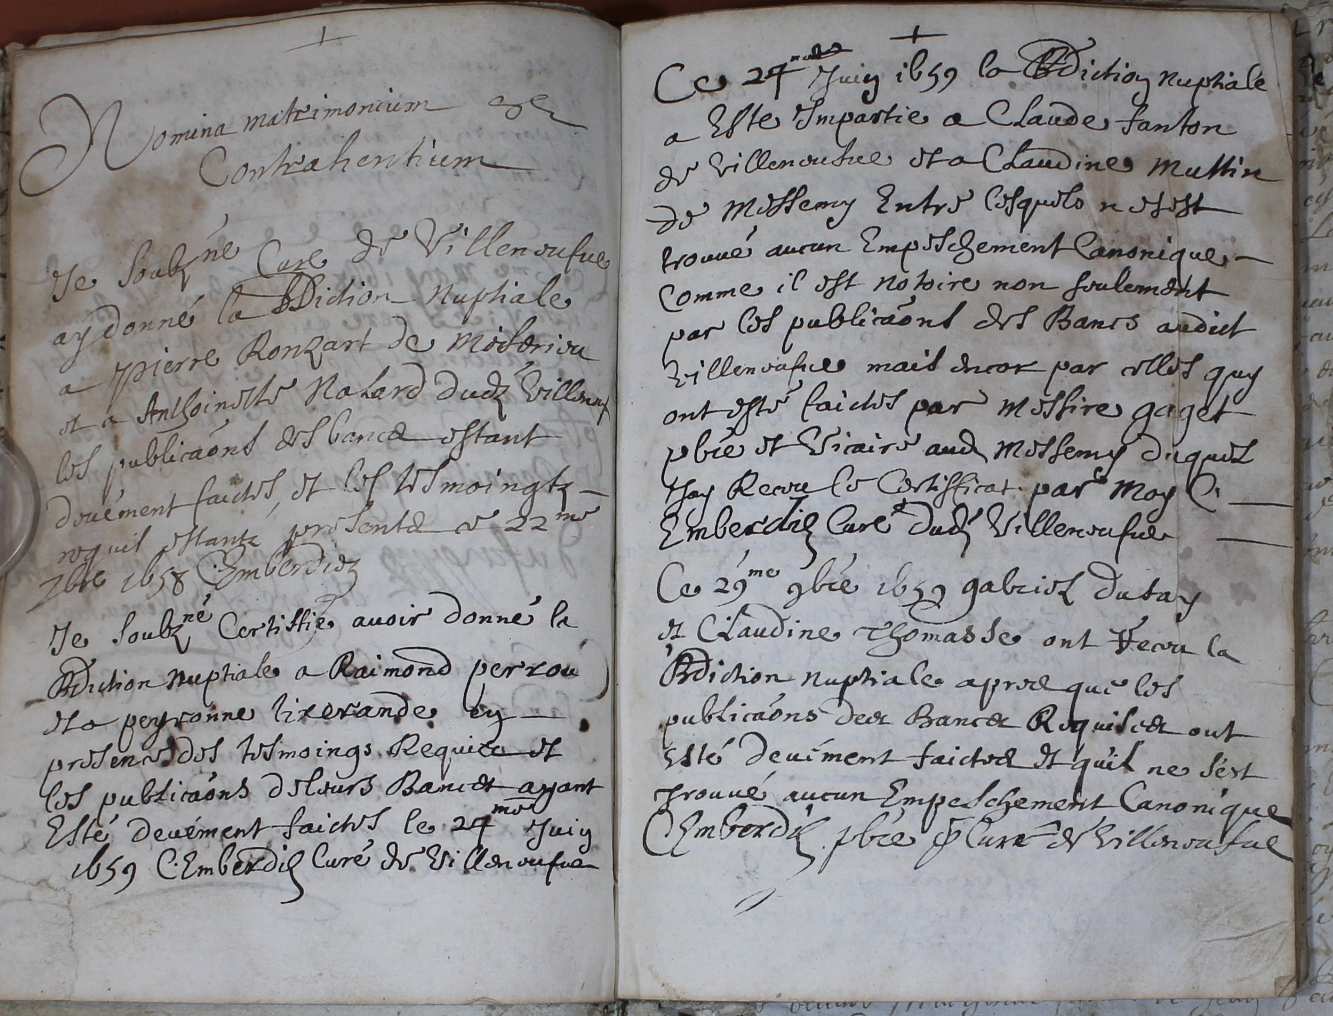 Nomina matrimonium
Contrahentium
Je soubzne Cure de Villeneufve
ay donné la Bndiction Nuptiale
a Pierre Ronzart de
et a Anthoinette Nalard dudt Villeneuf
les publicaôns des bancs estant
deuëment faictes et les tesmoingtz
requis estantz presents ce 22me
7bre 1658 CEmberdiz
Je soubzné Certiffie avoir donné la
Bndiction Nuptiale a Raimond perrou
et a peyronne tixerande en
presence des tesmoings Requis et
les publicaôns de leurs Bancs ayant
Esté deuëment faictes le 24me Juin
1659 CEmberdiz Curé de Villeneufve
Ce 24me Juin 1659 la Bndiction Nuptiale
a Este Impartie a Claude fanton
de Villeneufve et a Claudine Muttin
de Messemy Entre lesquels ne sest
trouvé aucun Empeschement Canonique
Comme il est notoire non seulement
par les publicaôns des Bancs audict
Villeneufve mais encor par celles quy
ont esté faictes par Messire gaget
pbre et Vicaire aud Messemy duquel
Jay Receu le Certifficat par Moy C.
Emberdiz Curé dudt Villeneufve
Ce 29me 9bre 1659 gabriel Dutay
et Claudine Thomasse ont Receu la
Bndiction nuptiale apres que les
publicaôns des Bances Requises ont
Esté deuëment faictes et quil ne sest
trouvé aucun Empeschement Canonique
CEmberdiz pbre Curé de Villeneufve